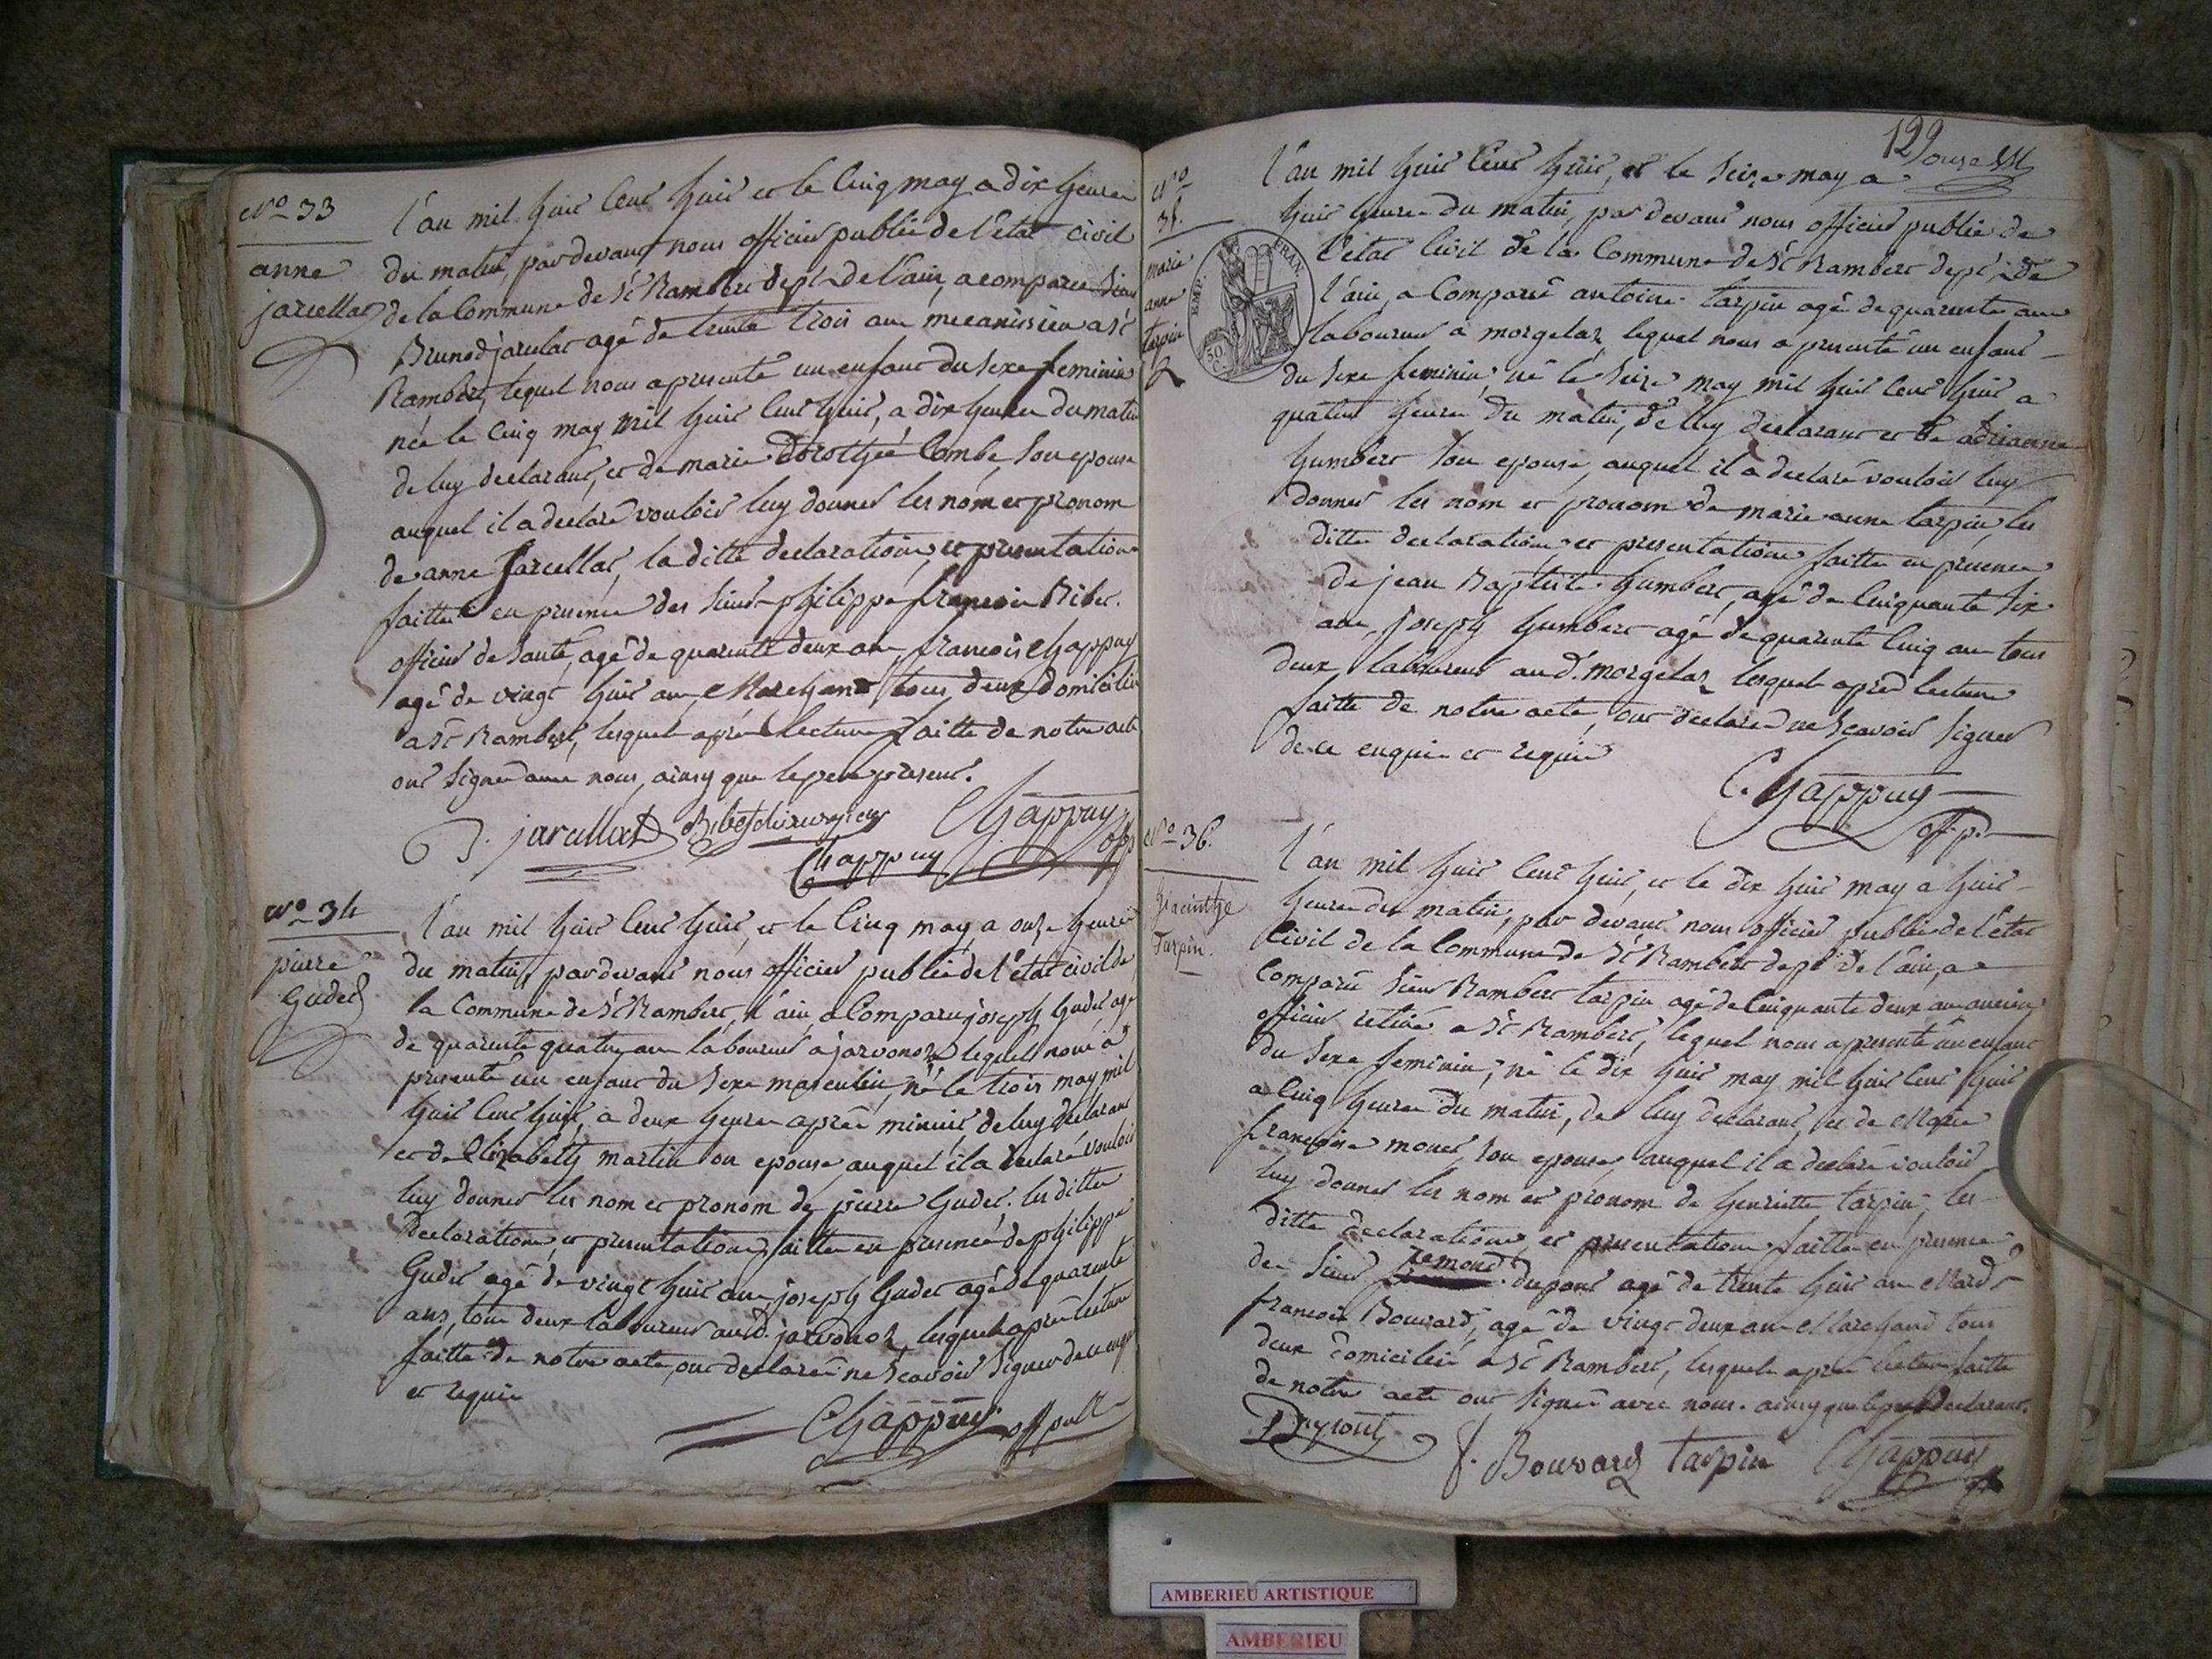 N.o 33
anne
jarcellat
l'an mil huit Cent huit et le Cinq may a dix heures
du matin, par devant nous officier public de l'état civil
de la Commune de St Rambert dept de l'ain, a comparu Sieur
Bruno jarcelat agé de trente trois ans mecanissien a St
Rambert, lequel nous a presenté un enfant du sexe feminin
née le Cinq may mil huit Cent huit, a dix heures du matin
de luy declarant, et de marie Dorothée Combe, son epouse
auquel il a declaré vouloir luy donner les nom et pronom
de anne Jarcellat, la ditte declaration, et presentation
faitte en presence des Sieurs philippe françois Ribet.
officier de santé, agé de quarente deux ans, françois Chappuy
agé de vingt huit ans, Marchand tous deux domiciliés
a St Rambert, lesquels après lecture faitte de notre acte
ont signé avec nous, ainsy que le pere present.
B. jarcellat Ribet chirurgien Chappuy offp
Chappuy
N.o 34
pierre
Gudet
l'an mil huit Cent huit, et le Cinq may, a onze heures
du matin, par devant nous officier public de l'état civil de
la Commune de St Rambert, l'ain, a Comparu joseph Gudet agé
de quarente quatre ans laboureur a jarvonoz, lequel nous a
presenté un enfant du Sexe masculin, né le trois may mil
huit Cent huit, a deux heures après minuit, de luy declarant
et de Elizabeth martin son epouse, auquel il a declaré vouloir
luy donner les nom et pronom de pierre Gudet. les dittes
declaration, et presentation, faitte en presence de philippe
Gudet agé de vingt huit ans, joseph Gudet agé de quarente
ans, tous deux laboureurs aud. jarvonoz, lesquels après lecture
faitte de notre acte, ont declaré ne Scavoir Signer de ce enquis
et requis
Chappuy off publ
129
onze
N.o
35.
marie
anne
tarpin
EMP. FRAN.
50 C.
l'an mil huit Cent huit, et le Seize may a
huit heures du matin, par devant nous officier public de
l'etat Civil de la Commune de St Rambert dept de
l'ain, a Comparü antoine tarpin agé de quarente ans
laboureur a morgelaz, lequel nous a presenté un enfant
du Sexe feminin, né le Seize may mil huit Cent huit a
quatre heures du matin, de luy declarant et de adrianne
humbert son epouse, auquel il a declaré vouloir luy
donner les nom et pronom de marie anne tarpin, les
ditte declaration, et presentation faitte en presence
de jean Baptiste humbert, agé de Cinquante Six
ans, joseph humbert agé de quarente Cinq ans tous
deux laboureurs aud. morgelaz lesquels après lecture
faitte de notre acte, ont declaré ne Scavoir Signer
de ce enquis et requis
C. Happuy
off. p.
N.o 36.
hiacinthe
Tarpin.
l'an mil huit Cent huit, et le dix huit may a huit
heures du matin, par devant nous officier public de l'état
Civil de la Commune de St Rambert dept de l'ain, a
Comparü Sieur Rambert tarpin agé de Cinquante deux ans ancien
officier retiré a St Rambert, lequel nous a presenté un enfant
du Sexe feminin, né le dix huit may mil huit Cent huit
a Cinq heures du matin, de luy declarant, et de Marie
françoise monet, son epouse, auquel il a declaré vouloir
luy donner les nom et pronom de henriette tarpin, les
ditte declaration, et presentation faitte en presence
des Sieurs remond dupont agé de trente huit ans Mard
françois Bouvard, agé de vingt deux ans Marchand tous
deux domiciliés a St Rambert, lesquels après lecture faitte
de notre acte ont Signé avec nous. ainsy que le pere declarant.
Dupont f. Bouvard tarpin Chappuy
AMBERIEU ARTISTIQUE
AMBERIEU